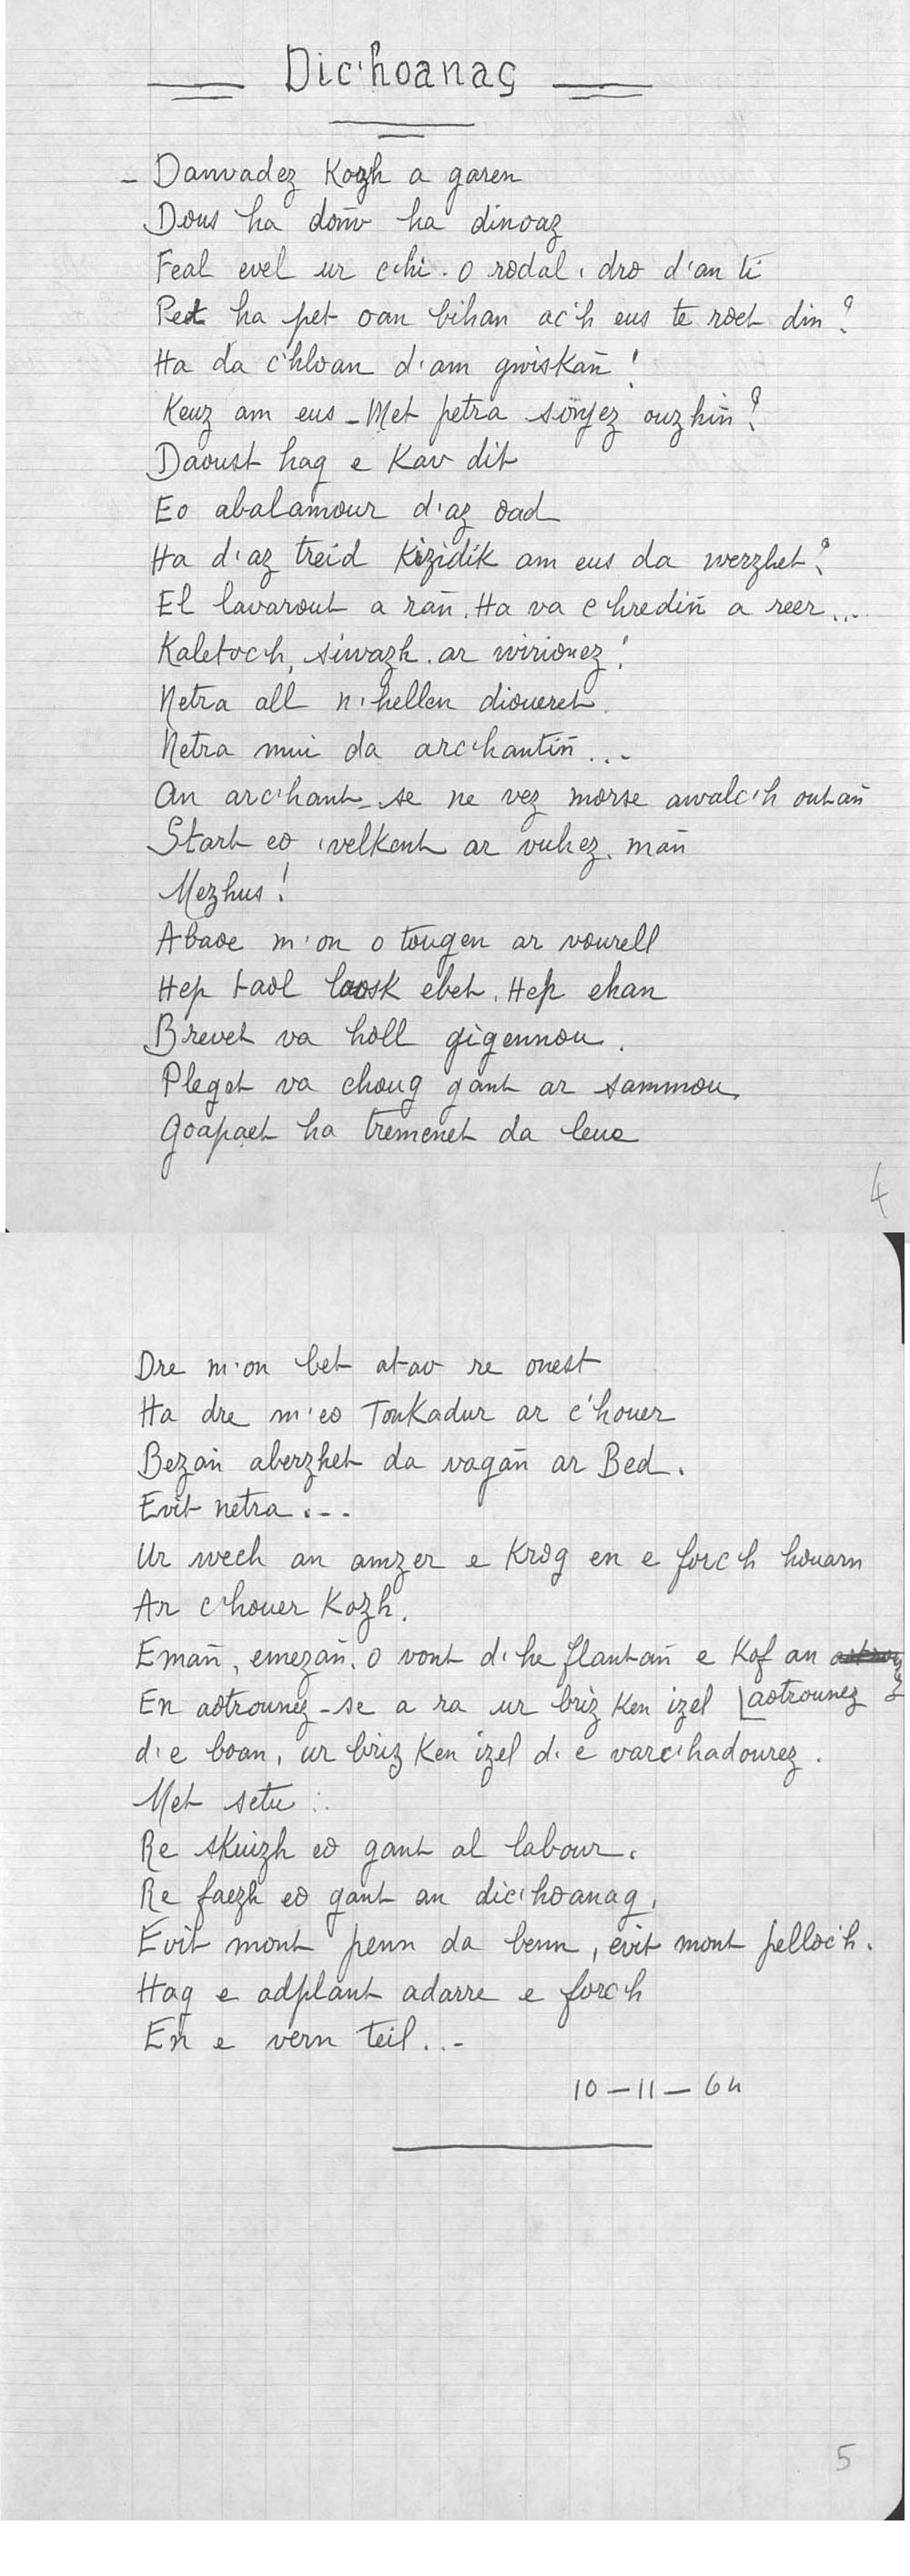 Dic'hoanag
- Danvadez Kozh a garen
Dous ha doñv ha dinoaz
Feal evel ur c'hi. o rodal 'dro d'an ti
Pet ha pet oan bihan ac'h eus te roet din?
Ha da c'hloan d'am gwiskañ!
Keuz am eus - Met petra soñjez ouzhin?
Daoust hag e Kav dit
Eo abalamour d'az oad
Ha d'az treid Kizidik am eus da werzhet?
El lavarout a ran. Ha va c'hrediñ a reer...
Kaletoc'h, siwazh. ar wirionez!
Netra all n'hellen dioueret.
Netra mui da arc'hantiñ...
An arc'hant-se ne vez morse awalc'h outañ
Start eo 'velkent ar vuhez-mañ
Mezhus!
Abaoe m'on o tougen ar vourell
Hep taol laosk ebet. Hep ehan
Brevet va holl gigennou.
Pleget va choug gant ar sammou.
Goapaet ha tremenet da leue
4
Dre m'on bet atav re onest
Ha dre m'eo Tonkadur ar c'houer
Bezañ aberzhet da vagañ ar Bed.
Evit netra...
Ur wech an amzer e Krog en e forc'h houarn
Ar c'houer Kozh.
Emañ, emezañ. o vont d'he flantañ e Kof an
En aotrounez-se a ra ur briz Ken izel [aotrounez
d'e boan, ur briz Ken izel d'e varc'hadourez.
Met setu...
Re skuizh eo gant al labour.
Re faezh eo gant an dic'hoanag,
Evit mont penn da benn, evit mont pelloc'h.
Hag e adplant adarre e forc'h
En e vern teil...
10-11-64
5